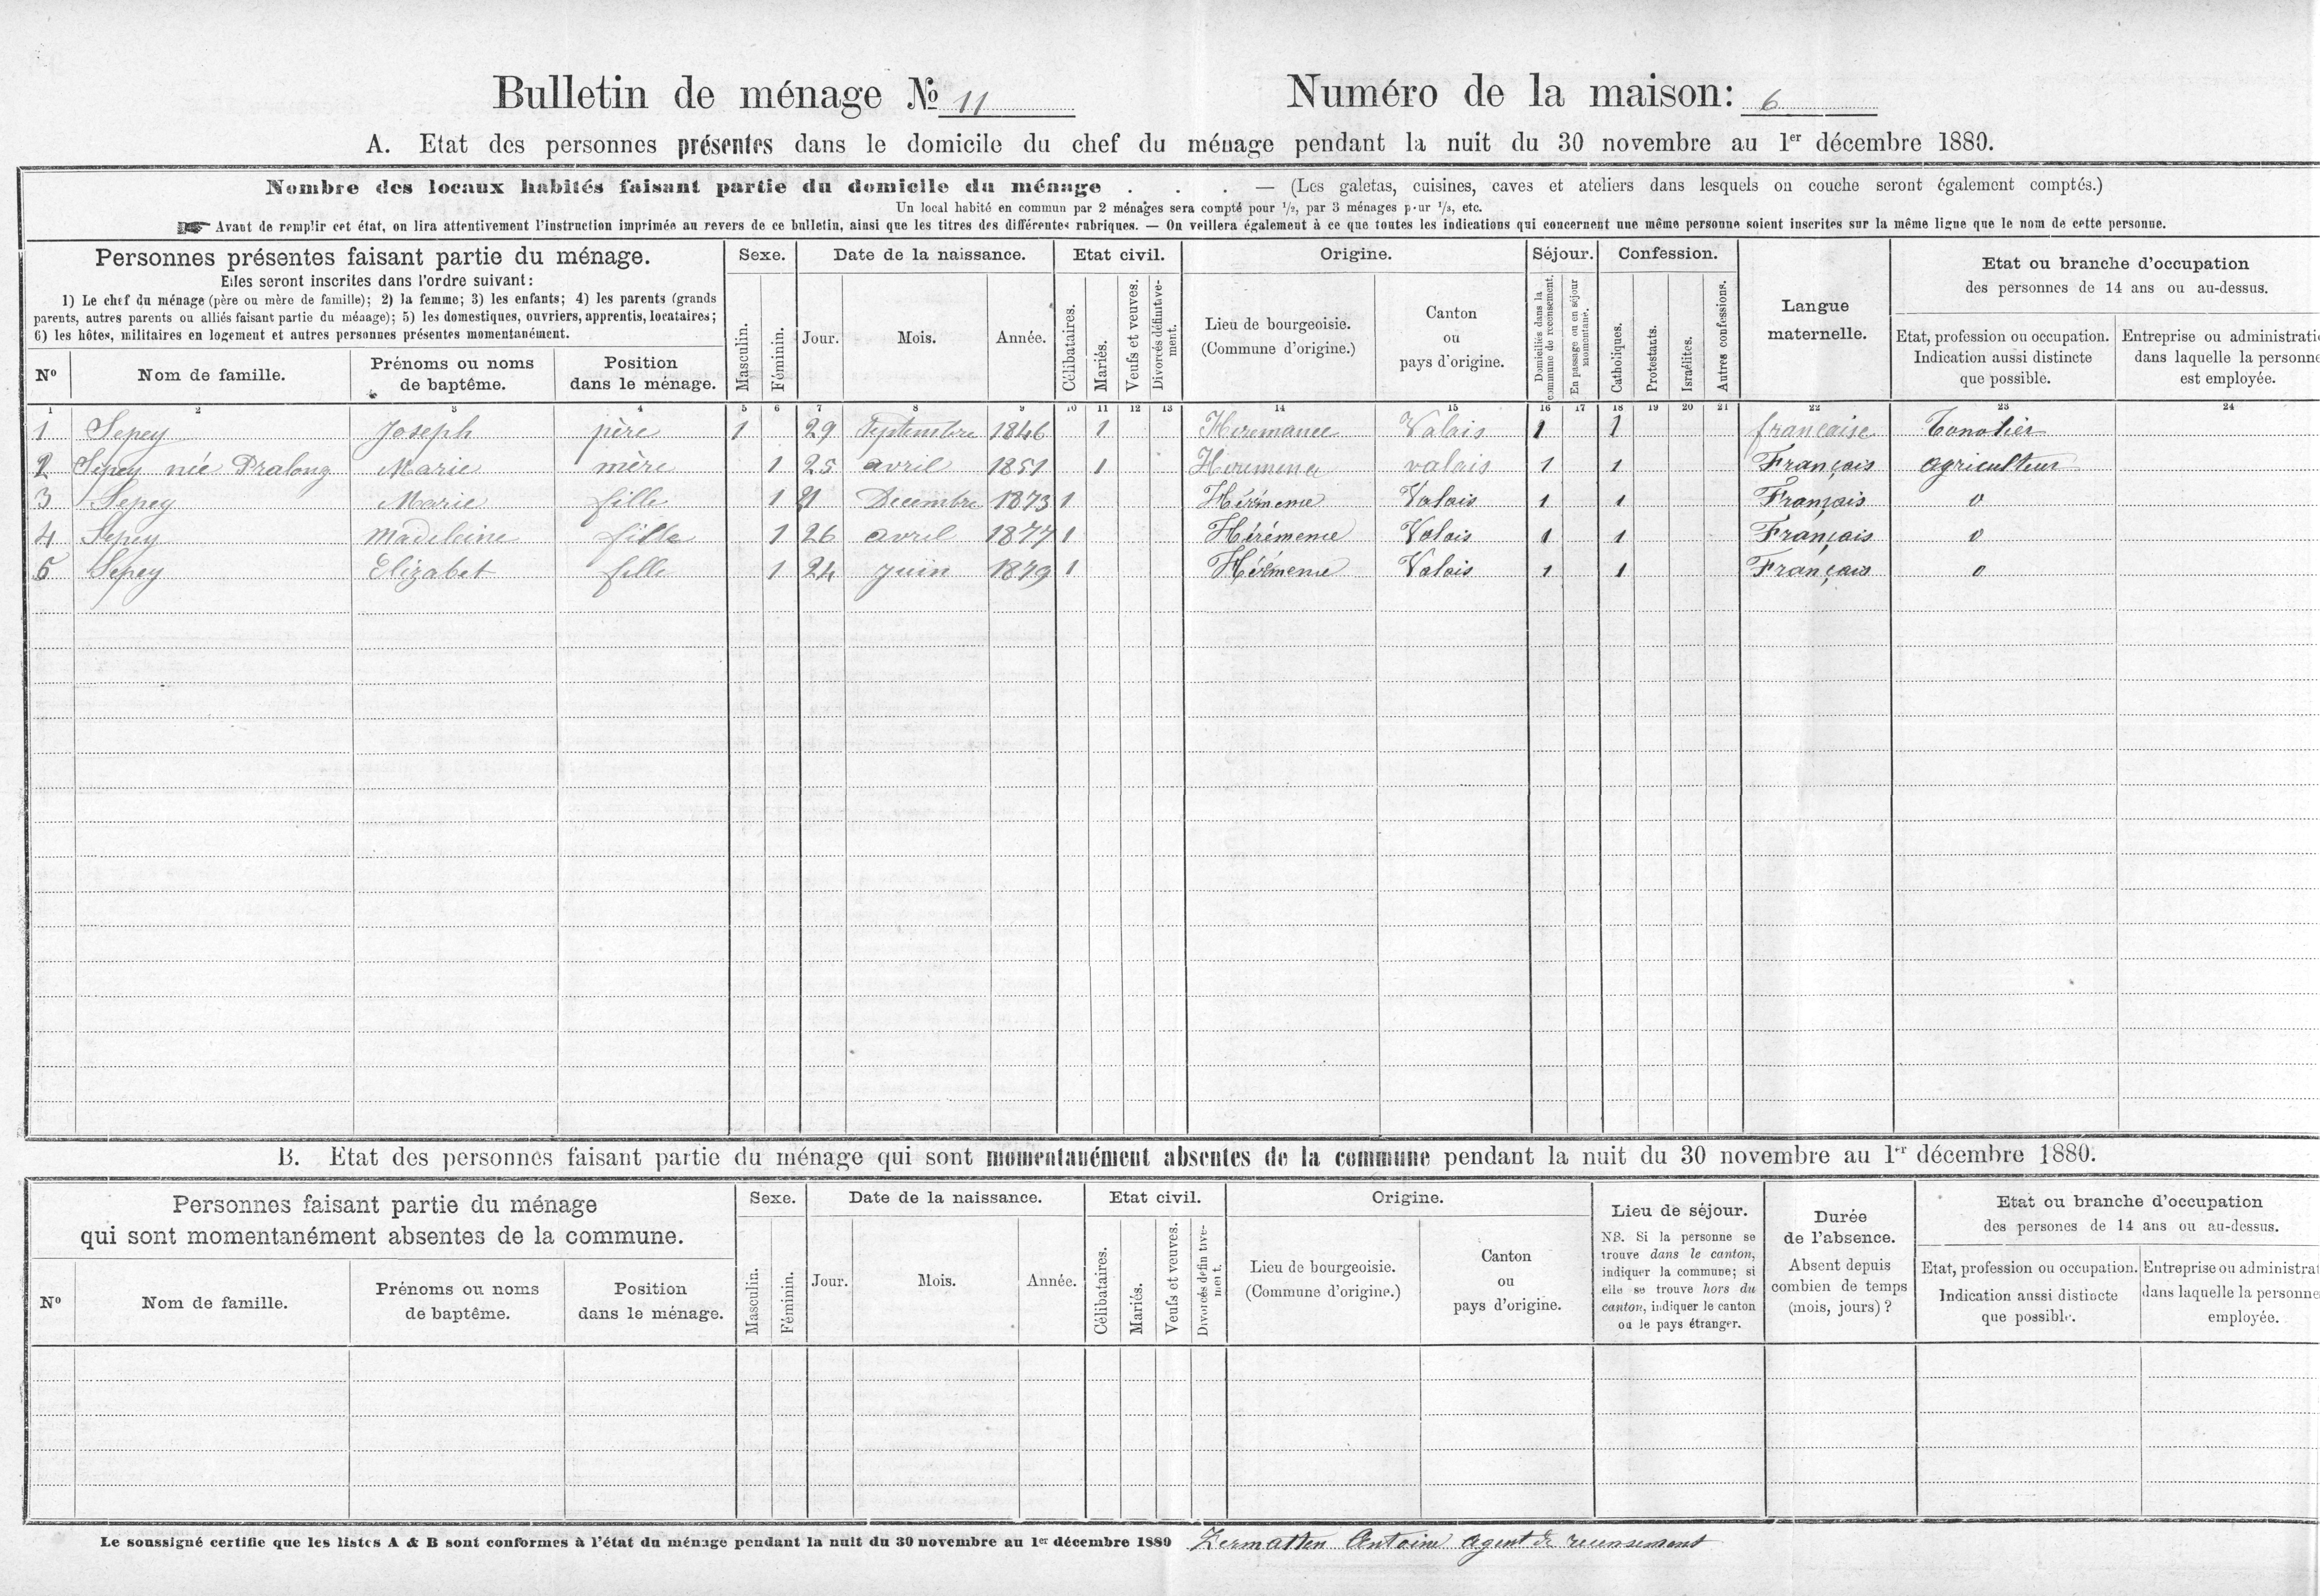 Bulletin de ménage No 11
Numéro de la maison: 6
A. Etat des personnes présentes dans le domicile du chef du ménage pendant la nuit du 30 novembre au 1er décembre 1880.
Nombre des locaux habités faisant partie du domicile du ménage . . . — (Les galetas, cuisines, caves et ateliers dans lesquels on couche seront également comptés.)
Un local habité en commun par 2 ménages sera compté pour 1/2, par 3 ménages pour 1/3, etc.
Avant de remplir cet état, on lira attentivement l'instruction imprimée au revers de ce bulletin, ainsi que les titres des différentes rubriques. — On veillera également à ce que toutes les indications qui concernent une même personne soient inscrites sur la même ligne que le nom de cette personne.
Personnes présentes faisant partie du ménage.
Elles seront inscrites dans l'ordre suivant:
1) Le chef du ménage (père ou mère de famille); 2) la femme; 3) les enfants; 4) les parents (grands
parents, autres parents ou alliés faisant partie du ménage); 5) les domestiques, ouvriers, apprentis, locataires;
6) les hôtes, militaires en logement et autres personnes présentes momentanément.
No
Nom de famille.
Prénoms ou noms
de baptême.
Position
dans le ménage.
Sexe.
Masculin.
Féminin.
Date de la naissance.
Jour.
Mois.
Année.
Etat civil.
Célibataires.
Mariés.
Veufs et veuves.
Divorcés définitive-
ment.
Origine.
Lieu de bourgeoisie.
(Commune d'origine.)
Canton
ou
pays d'origine.
Séjour.
Domiciliés dans la
commune de recensement.
En passage ou en séjour
momentané.
Confession.
Catholiques.
Protestants.
Israélites.
Autres confessions.
Langue
maternelle.
Etat ou branche d'occupation
des personnes de 14 ans ou au-dessus.
Etat, profession ou occupation.
Indication aussi distincte
que possible.
Entreprise ou administrati
dans laquelle la personne
est employée.
1 2 3 4 5 6 7 8 9 10 11 12 13 14 15 16 17 18 19 20 21 22 23 24
1 Sepey Joseph père 1 29 Septembre 1846 1 Heremance Valais 1 1 française Tonolier
2 Sepey née Pralong Marie mère 1 25 avril 1851 1 Valais 1 1 Français agriculteur
3 Sepey Marie fille 1 21 Decembre 1873 1 Hérémence Valais 1 1 Français 0
4 Sepey Madeleine fille 1 26 avril 1877 1 Hérémence Valais 1 1 Français 0
5 Sepey Elizabet fille 1 24 juin 1879 1 Hérémence Valais 1 1 Français 0
B. Etat des personnes faisant partie du ménage qui sont momentanément absentes de la commune pendant la nuit du 30 novembre au 1er décembre 1880.
Personnes faisant partie du ménage
qui sont momentanément absentes de la commune.
No
Nom de famille.
Prénoms ou noms
de baptême.
Position
dans le ménage.
Sexe.
Masculin.
Féminin.
Date de la naissance.
Jour.
Mois.
Année.
Etat civil.
Célibataires.
Mariés.
Veufs et veuves.
Divorcés définitive-
ment.
Origine.
Lieu de bourgeoisie.
(Commune d'origine.)
Canton
ou
pays d'origine.
Lieu de séjour.
NB. Si la personne se
trouve dans le canton,
indiquer la commune; si
elle se trouve hors du
canton, indiquer le canton
ou le pays étranger.
Durée
de l'absence.
Absent depuis
combien de temps
(mois, jours)?
Etat ou branche d'occupation
des persones de 14 ans ou au-dessus.
Etat, profession ou occupation.
Indication aussi distincte
que possible.
Entreprise ou administrat
dans laquelle la personne
employée.
Le soussigné certifie que les listes A & B sont conformes à l'état du ménage pendant la nuit du 30 novembre au 1er décembre 1880 Zermatten Antoine agent de recensement